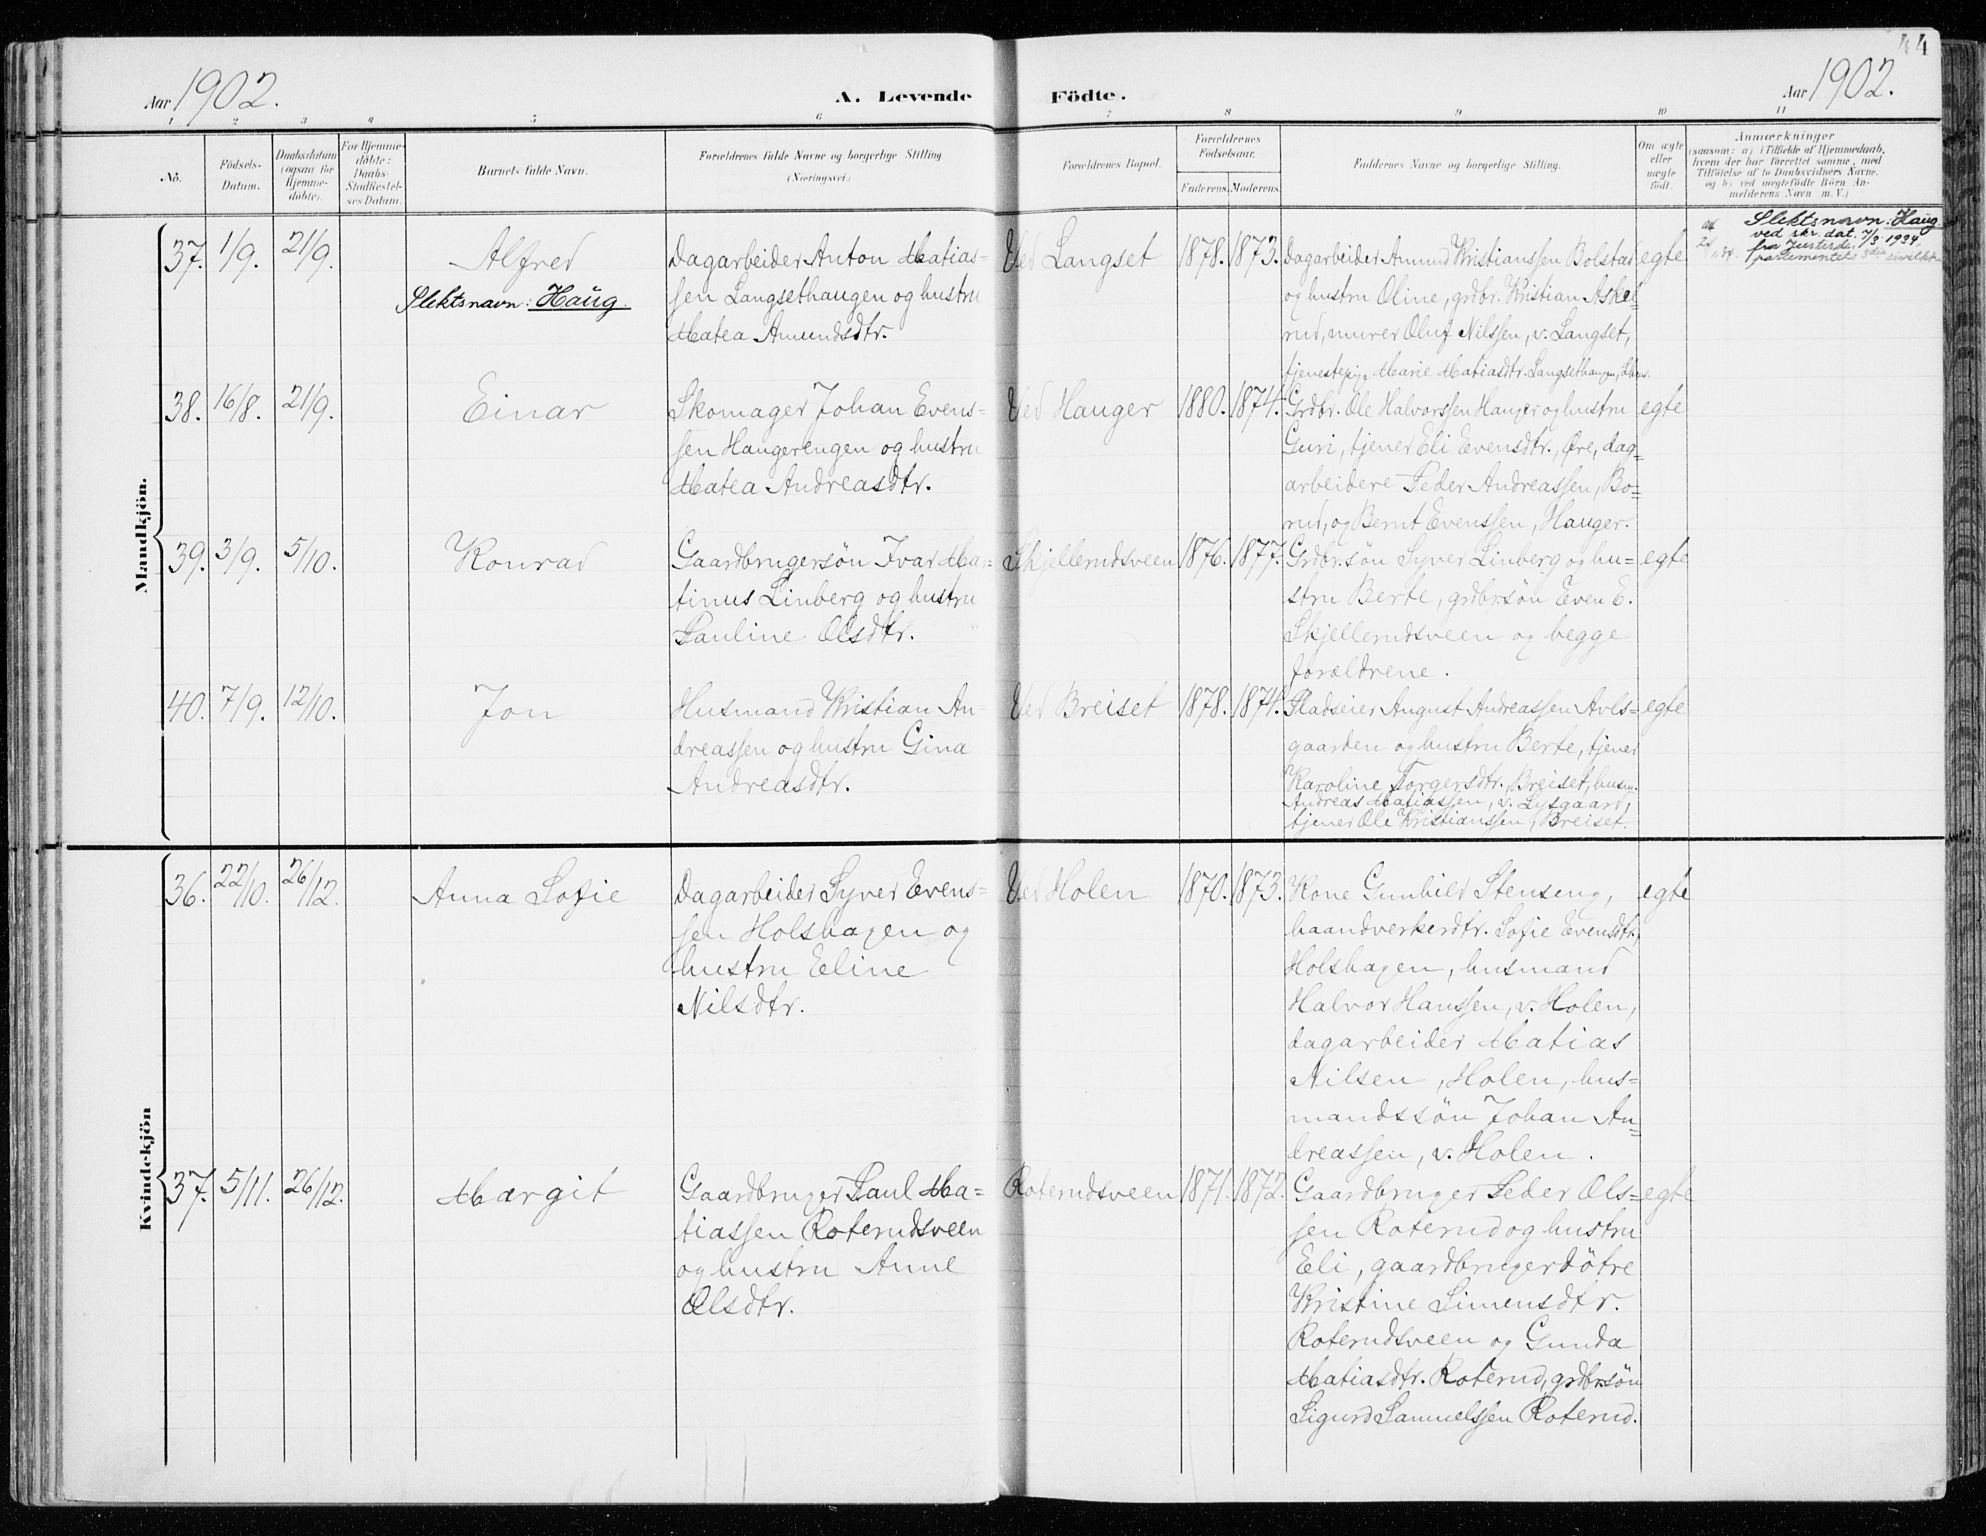 44
Aar 1902.
A. Levende Födte.
Aar 1902.
1 2 3 4 5 6 7 8 9 10 11
No.
Födsels-Datum.
Daabsdatum (ogsaa for Hjemme-döbte).
For Hjemme-döbte: Daabs-Stadfæstel-ses Datum.
Barnets fulde Navn.
Forældrenes fulde Navne og borgerlige Stilling (Næringsvei.)
Forældrenes Bopæl.
Forældrenes Födselsaar.
Faderens. Moderens.
Faddernes Navne og borgerlige Stilling.
Om ægte eller uægte födt.
Anmærkninger
(saasom: a) i Tilfælde af Hjemmedaab,
hvem der har forrettet samme, med
Tilföielse af to Daabsvidners Navne.
og b) ved uegtefödte Börn An-
melderens Navn m. V.)
Mandkjön.
37. 1/9. 21/9.
Alfred
Slektsnavn: Haug.
Dagarbeider Anton Matias-
sen Langsethaugen og hustru
Matea Amundsdtr.
Ved Langset 1878. 1873.
Dagarbeider Amund Kristianssen Bolstad
og hustru Oline, grdbr. Kristian Askel-
rud, murer Oluf Nilssen, v. Langset,
tjenestepige Marie Matiasdtr. Langsethaugen,
egte
Slektsnavn: Haug
ved skr. dat. 7/3 1934
fra Justisde-
partementets 3die sivilktr.
38. 16/8. 21/9.
Einar
Skomager Johan Evens-
sen Haugerengen og hustru
Matea Andreasdtr.
Ved Hauger 1880. 1874.
Grdbr. Ole Halvorssen Hauger og hustru
Guri, tjener Eli Evensdtr., Øre, dag-
arbeidere Peder Andreassen, Bo-
rud, og Bernt Evenssen, Hauger.
egte
39. 3/9. 5/10.
Konrad
Gaardbrugersøn Ivar Mar-
tinus Linberg og hustru
Pauline Olsdtr.
Skjellerudsveen 1876. 1877.
Grdbr.søn Syver Linberg og hu-
stru Berte, grdbrsøn Even E.
Skjellerudsveen og begge
forældrene.
egte
40. 7/9. 12/10.
Jon
Husmand Kristian An-
dreassen og hustru Gina
Andreasdtr.
Ved Breiset 1878. 1874.
Pladseier August Andreassen Avls-
gaarden og hustru Berte, tjener
Karoline Torgersdtr., Breiset, husm.
Andreas Matiassen, v. Lysgaard,
tjener Ole Kristianssen, Breiset.
egte
Kvindekjön
36. 22/10. 26/12.
Anna Sofie
Dagarbeider Syver Evens-
sen Holshagen og
hustru Eline
Nilsdtr.
Ved Holen 1870. 1873.
Kone Gunhild Stenseng,
haandverkerdtr. Sofie Evensdtr,
Holshagen, husmand
Halvor Hanssen, v. Holen,
dagarbeider Matias
Nilsen, Holen, hus-
mandssøn Johan An-
dreassen, v. Holen.
egte
37. 5/11. 26/12.
Margit
Gaardbruger Paul Ma-
tiassen Roterudsveen
og hustru Anne
Olsdtr.
Roterudsveen 1871. 1872.
Gaardbruger Peder Ols-
sen Roterud og hustru
Eli, gaardbrugerdøtre
Kristine Simensdtr.
Roterudsveen og Gunda
Matiasdtr. Roterud, grdbrsøn
Sigurd Samuelssen Roterud.
egte